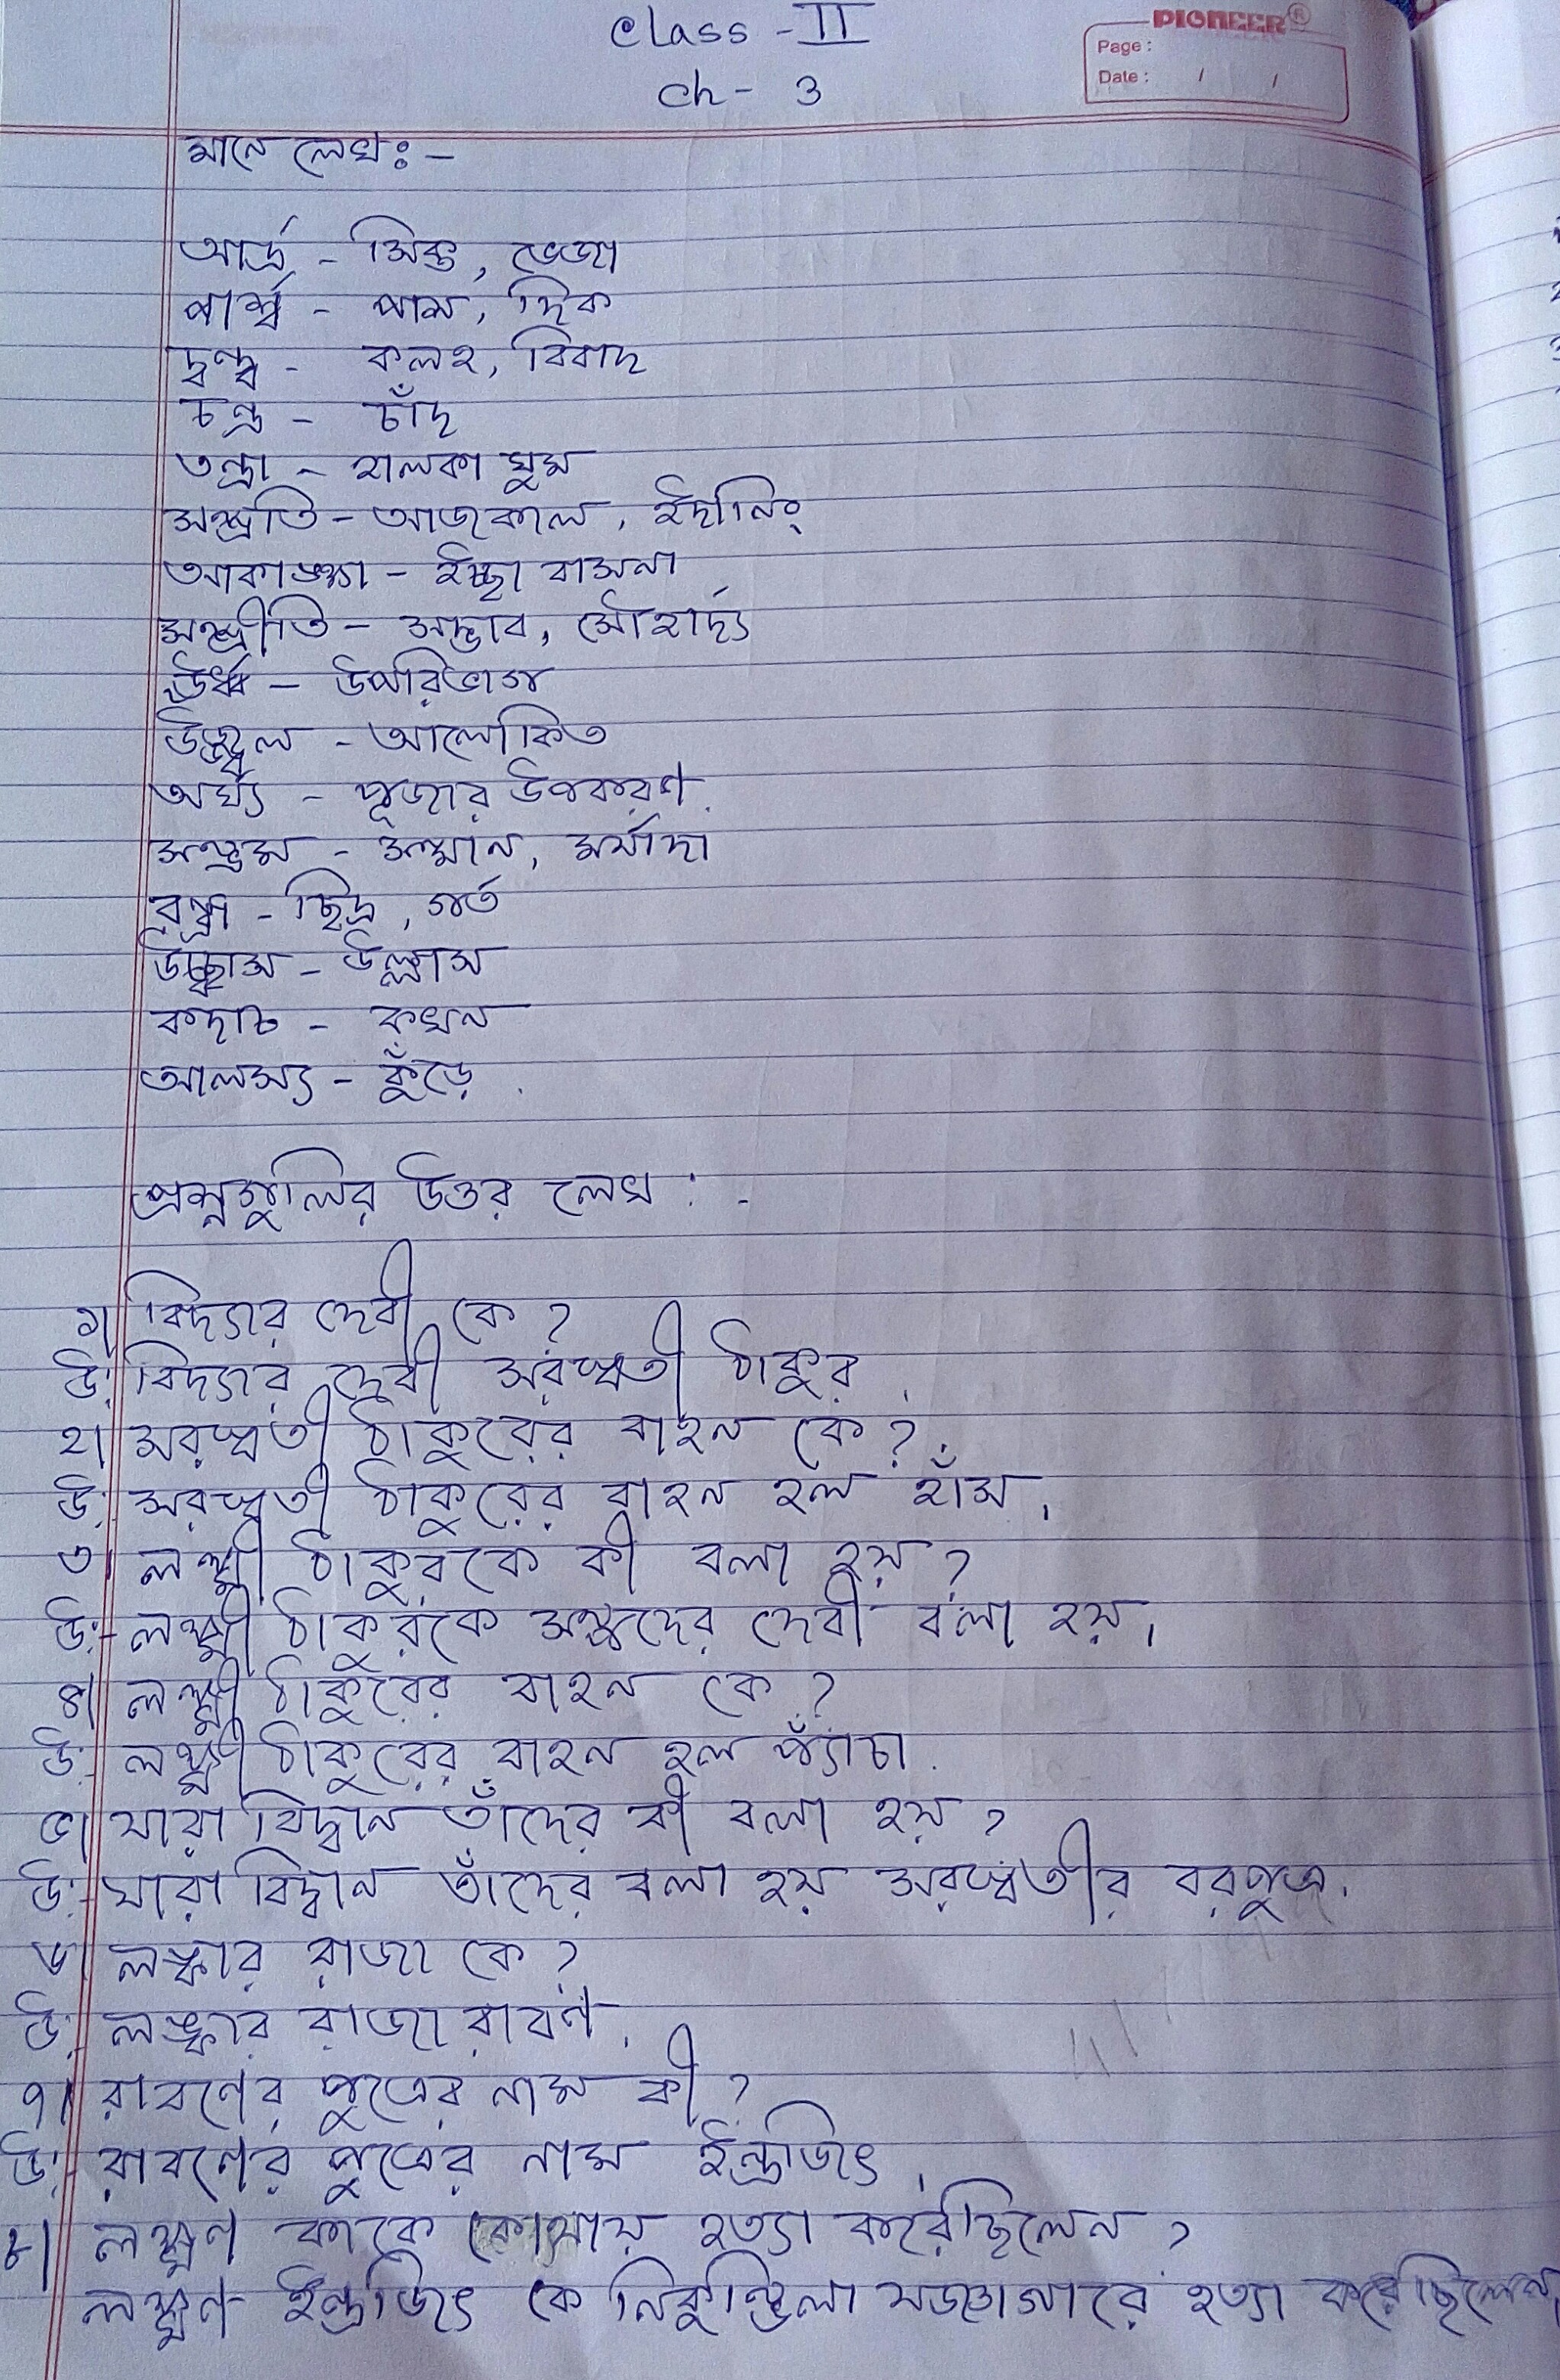 Class - II
PIONEER®
Page :
Date : / /
Ch - 3
মানে লেখঃ-
আর্দ্র - সিক্ত, ভেজা
পার্শ্ব - পাশ, দিক
দ্বন্দ্ব - কলহ, বিবাদ
চন্দ্র - চাঁদ
তন্দ্রা - হালকা ঘুম
সম্প্রতি - আজকাল, ইদানিং
আকাঙ্ক্ষা - ইচ্ছা বাসনা
সম্প্রীতি - সদ্ভাব, সৌহার্দ্য
ঊর্ধ্ব - উপরিভাগ
উজ্জ্বল - আলোকিত
অর্ঘ্য - পূজার উপকরণ.
সম্ভ্রম - সম্মান, মর্যাদা
রন্ধ্র - ছিদ্র, গর্ত
উচ্ছ্বাস - উল্লাস
কদাচ - কখন
আলস্য - কুঁড়ে.
প্রশ্নগুলির উত্তর লেখ :-
১| বিদ্যার দেবী কে?
উ: বিদ্যার দেবী সরস্বতী ঠাকুর.
২| সরস্বতী ঠাকুরের বাহন কে?
উ: সরস্বতী ঠাকুরের বাহন হল হাঁস।
৩| লক্ষ্মী ঠাকুরকে কী বলা হয়?
উ:- লক্ষ্মী ঠাকুরকে সম্পদের দেবী বলা হয়।
৪| লক্ষ্মী ঠাকুরের বাহন কে?
উ:- লক্ষ্মী ঠাকুরের বাহন হল প্যাঁচা.
৫| যারা বিদ্বান তাঁদের কী বলা হয়?
উ:- যারা বিদ্বান তাঁদের বলা হয় সরস্বতীর বরপুত্র.
৬| লঙ্কার রাজা কে?
উ:- লঙ্কার রাজা রাবণ.
৭| রাবণের পুত্রের নাম কী?
উ:- রাবণের পুত্রের নাম ইন্দ্রজিৎ.
৮| লক্ষ্মণ কাকে কোথায় হত্যা করেছিলেন?
লক্ষ্মণ ইন্দ্রজিৎ কে নিকুম্ভিলা যজ্ঞাগারে হত্যা করেছিলেন।